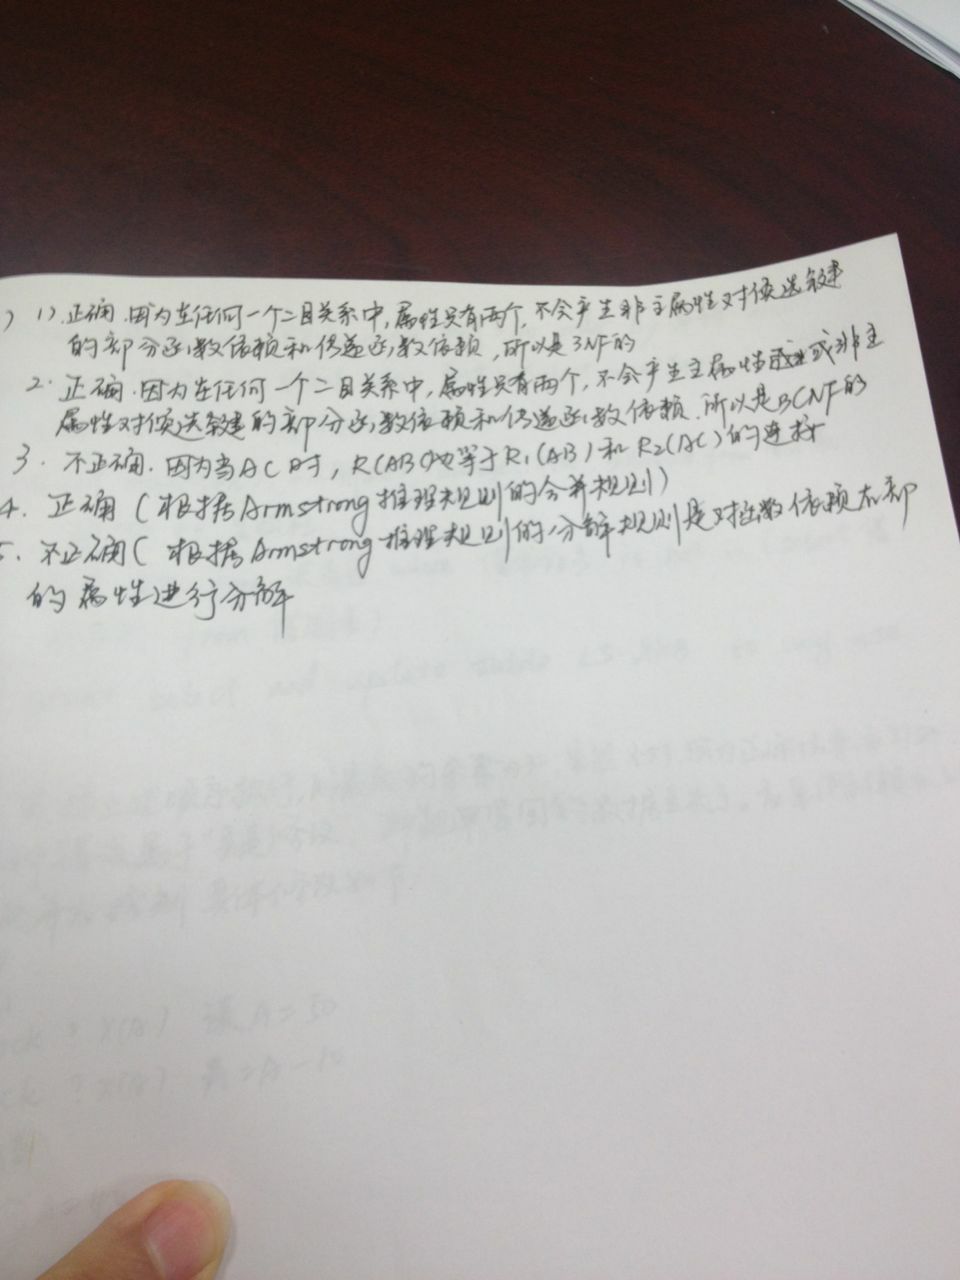 ) 1) 正确.因为在任何一个二目关系中,属性只有两个,不会产生非主属性对候选键
的部分函数依赖和传递函数依赖,所以是3NF的
2. 正确.因为在任何一个二目关系中,属性只有两个,不会产生主属性或非主
属性对候选键的部分函数依赖和传递函数依赖.所以是BCNF的
3. 不正确.因为当AC时,R(ABC)也等于R1(AB)和R2(AC)的连接
4. 正确(根据Armstrong推理规则的合并规则)
5. 不正确(根据Armstrong推理规则的分解规则是对函数依赖右部
的属性进行分解